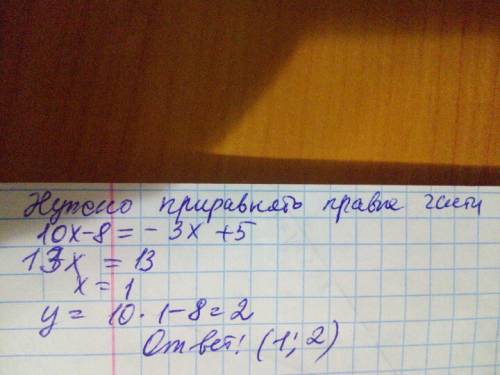 Нужно приравнять правые части
10x-8=-3x+5
13x = 13
x=1
y= 10·1-8=2
Ответ: (1; 2)